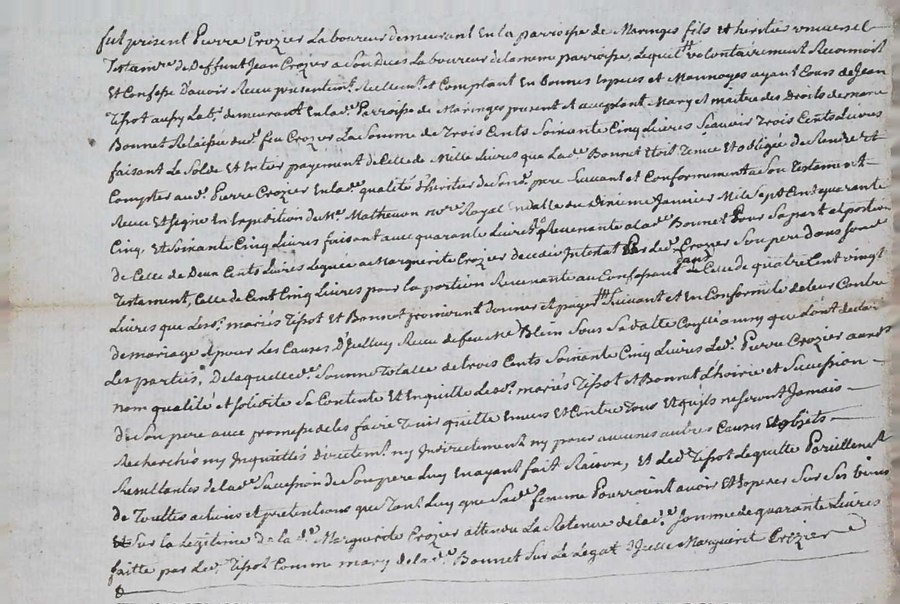 fut present Pierre Crozier Laboureur demeurant En la parroisse de Maringes fils et heritier universel
Testamre. de Deffunt Jean Crozier a son deces Laboureur de la meme parroisse, Lequel volontairement Reconnoit
Et Confesse D'avoir Receu presentemt. Reellemt. et Comptant En bonnes Especes et Monnoyes ayant Cours de Jean
Tissot aussy Labr. demeurant En lade. Parroisse de Maringes present et acceptant Mary et maitre des Droits de marie
Bonnet Relaissée dud. feu Crozier La Somme de Trois Cents Soixante Cinq Livres Scavoir Trois Cents Livres
faisant Le Solde Et Entier payement de Celle de Mille Livres que Lade. Bonnet Etoit Tenue Et obligée de Rendre et
Compter aud. Pierre Crozier En lade. qualité d'heritier de Sond. pere Suivant et Conformement a Son Testament
Receu Et Signé En Expedition de Me. Matheuon nore. Royal En datte du dixieme Janvier Mil Sept Cent quarante
Cinq, Et Soixante Cinq Livres faisant avec quarante Livres Revenante a lade. Bonnet Pour Sa part et portion
de Celle de Deux Cents Livres Leguée a Marguerite Crozier decedée Intestat Par Led. Crozier Son pere dans Sond.
Testament, Celle de Cent Cinq Livres pour la portion Revenante au Confessant dans Celle de quatre Cent vingt
Livres que Lesd. mariés Tissot Et Bonnet promirent donner et payer Suivant et En Conformité de leur Contrat
de mariage Et pour Les Causes D'Icelluy Receu de feu Me. Blein Sous Sa datte Con[...]llé ainsy que L'ont declaré
Les parties, De laquelle de. Somme Totalle de trois Cents Soixante Cinq Livres Led. Pierre Crozier auxds.
nom qualité et Solidité Se Contente Et En quitte Lesd. mariés Tissot et Bonnet L'hoirie et Succession
de Son pere avec promesse de les faire Tenir quitte Envers Et Contre Tous Et qu'ils ne Seront Jamais
Recherchés ny Inquiettés directemt. ny Indirectement ny pour aucunes autres Causes Et objets
Resultantes de lade. Succession de Son pere Luy En ayant fait Raison, Et Led. Tissot Le quitte Pareillement
de Touttes actions Et pretentions que Tant Luy que Sade. femme Pourroient avoir Et Esperer Sur Ses biens
Et Sur La Legitime de lade. Marguerite Crozier attendu La Retenue de lade. Somme de quarante Livres
faitte par Led. Tissot Comme mary de lade. Bonnet Sur Le Legat D'Icelle Marguerite Crozier